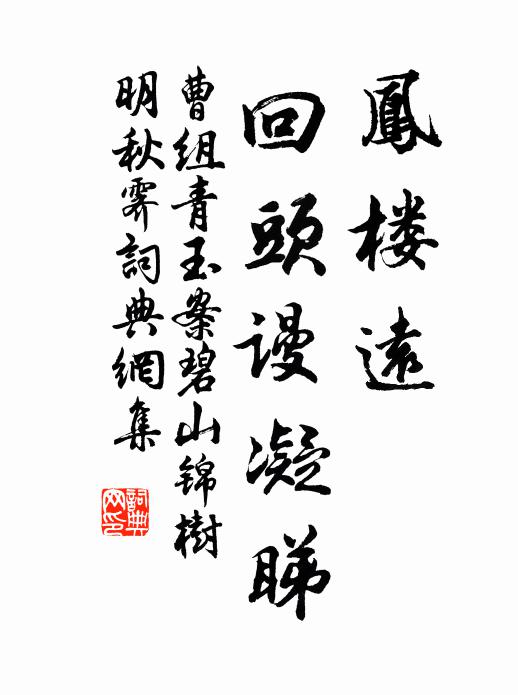 鳳楼遠
回頭謾凝睇
曹组青玉案碧山锦樹
明秋霽詞典網集
詞典网印